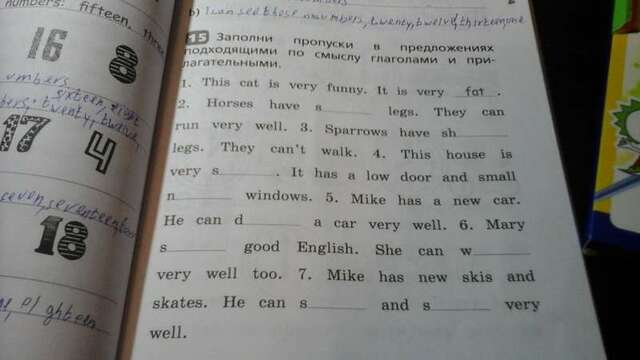 numbers: fifteen, three
16 8
umbers
sixteen, eight
bers, twenty, twelve,
17 4
seven, seventeen,
18
eighteen
b) I can see these numbers, twenty, twelve, thirteen, one
15 Заполни пропуски в предложениях
подходящими по смыслу глаголами и при-
лагательными.
1. This cat is very funny. It is very fat.
2. Horses have s________ legs. They can
run very well. 3. Sparrows have sh________
legs. They can't walk. 4. This house is
very s________. It has a low door and small
n________ windows. 5. Mike has a new car.
He can d________ a car very well. 6. Mary
s________ good English. She can w________
very well too. 7. Mike has new skis and
skates. He can s________ and s________ very
well.